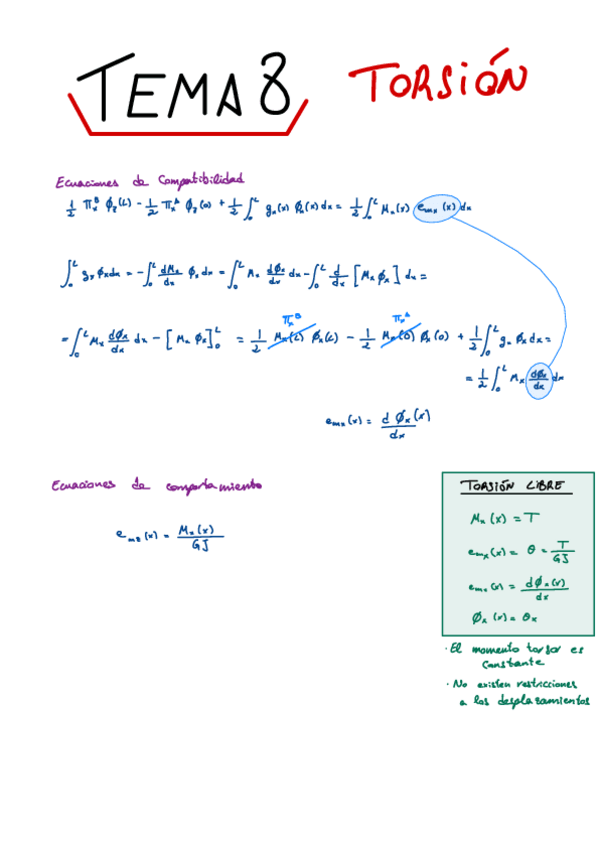 TEMA 8 TORSIÓN
Ecuaciones de Compatibilidad
1/2 π_x^B ϕ_z(L) - 1/2 π_x^A ϕ_z(0) + 1/2 ∫_0^L g_x(x) ϕ_x(x) dx = 1/2 ∫_0^L M_x(x) e_mx(x) dx
∫_0^L g_x ϕ_x dx = - ∫_0^L dM_x/dx ϕ_x dx = ∫_0^L M_x dϕ_x/dx dx - ∫_0^L d/dx [M_x ϕ_x] dx =
π_x^B π_x^A
= ∫_0^L M_x dϕ_x/dx dx - [M_x ϕ_x]_0^L = 1/2 M_x(L) ϕ_x(L) - 1/2 M_x(0) ϕ_x(0) + 1/2 ∫_0^L g_x ϕ_x dx =
= 1/2 ∫_0^L M_x dϕ_x/dx dx
e_mx(x) = dϕ_x(x)/dx
Ecuaciones de comportamiento
e_mz(x) = M_x(x)/GJ
TORSIÓN LIBRE
M_x(x) = T
e_mx(x) = θ = T/GJ
e_mx(x) = dϕ_x(x)/dx
ϕ_x(x) = θx
· El momento torsor es
constante
· No existen restricciones
a los desplazamientos